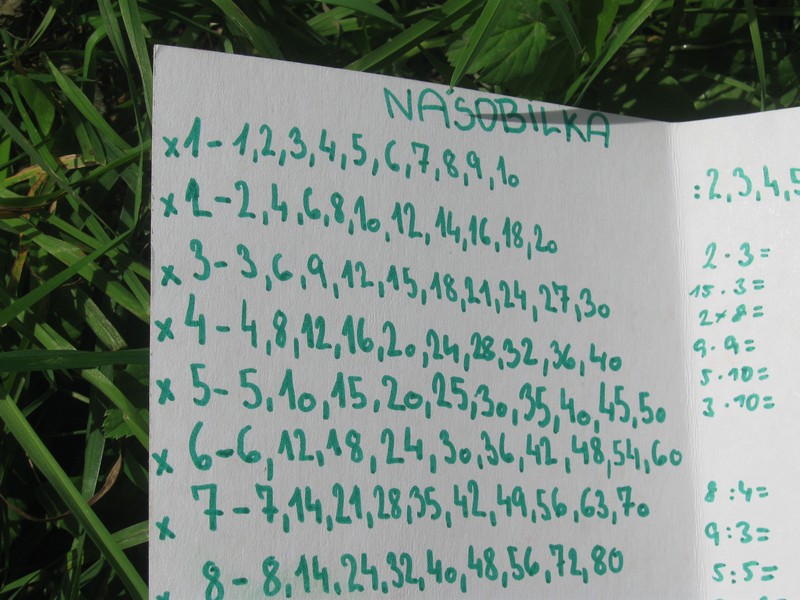 NÁSOBILKA
x1-1,2,3,4,5,6,7,8,9,10
x2-2,4,6,8,10,12,14,16,18,20
x 3-3,6,9,12,15,18,21,24,27,30
x 4-4,8,12,16,20,24,28,32,36,40
x 5-5,10,15,20,25,30,35,40,45,50
x 6-6,12,18,24,30,36,42,48,54,60
x 7-7,14,21,28,35,42,49,56,63,70
x 8-8,14,24,32,40,48,56,72,80
:2,3,4,5
2·3=
15·3=
2x8=
9·9=
5·10=
3·10=
8:4=
9:3=
5:5=